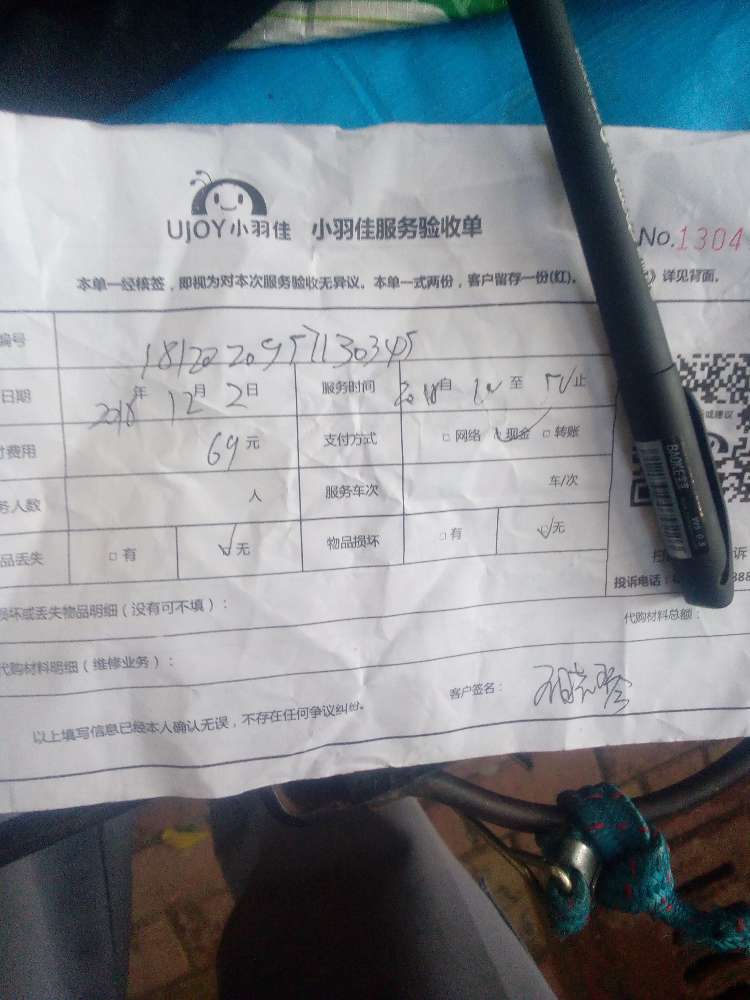 UJOY小羽佳 小羽佳服务验收单
No.1304
本单一经核签，即视为对本次服务验收无异议。本单一式两份，客户留存一份(红)。 》详见背面。
编号
日期 2018年12月2日 服务时间 自 至 止
费用 69元 支付方式 □网络 ✓现金 □转账
务人数 人 服务车次 车/次
品丢失 □有 ✓无 物品损坏 □有 ✓无
投诉电话：
损坏或丢失物品明细（没有可不填）：
代购材料总额：
代购材料明细（维修业务）：
客户签名：
以上填写信息已经本人确认无误，不存在任何争议纠纷。